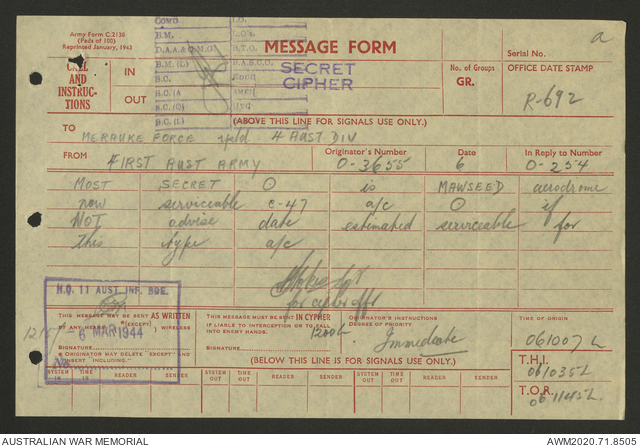 Army Form C.2136
(Pads of 100)
Reprinted January, 1943
CALL
AND
INSTRUC-
TIONS
IN
OUT
COMD.
B.M.
D.A.A.& Q.M.G.
B.M. (L)
S.C.
S.C. (A
S.C. (Q)
S.C. (L)
I.O.
L.O's.
B.T.O.
MESSAGE FORM
SECRET
CIPHER
No. of Groups
GR.
Serial No.
OFFICE DATE STAMP
a
R-692
(ABOVE THIS LINE FOR SIGNALS USE ONLY.)
TO MERAUKE FORCE 4 AUST DIV
FROM FIRST AUST ARMY
Originator's Number
O-3655
Date
6
In Reply to Number
O-254
MOST SECRET O is MAWSEED aerodrome
now serviceable C-47 a/c O if
NOT advise date estimated serviceable for
this type a/c
for cipher offr
H.Q. 11 AUST. INF. BDE.
6 MAR 1944
No.
THIS MESSAGE MAY BE SENT AS WRITTEN
BY ANY MEANS (EXCEPT) WIRELESS
SIGNATURE
ORIGINATOR MAY DELETE "EXCEPT" AND
INSERT "INCLUDING."
THIS MESSAGE MUST BE SENT IN CYPHER
IF LIABLE TO INTERCEPTION OR TO FALL
INTO ENEMY HANDS.
1200L
SIGNATURE
ORIGINATOR'S INSTRUCTIONS
DEGREE OF PRIORITY
Immediate
TIME OF ORIGIN
061007 L
T.H.I.
061035L
T.O.R.
061145L
(BELOW THIS LINE IS FOR SIGNALS USE ONLY.)
SYSTEM IN
TIME IN
READER
SENDER
SYSTEM OUT
TIME OUT
READER
SENDER
SYSTEM OUT
TIME OUT
READER
SENDER
AUSTRALIAN WAR MEMORIAL
AWM2020.71.8505